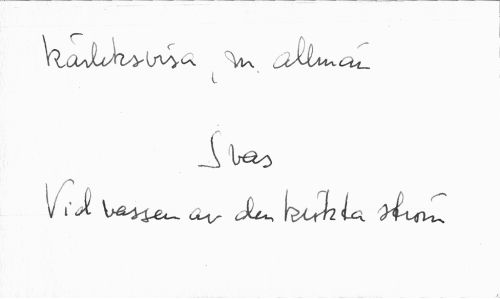 kärleksvisa, m. allmän
Svas
Vid vassen av den krökta ström